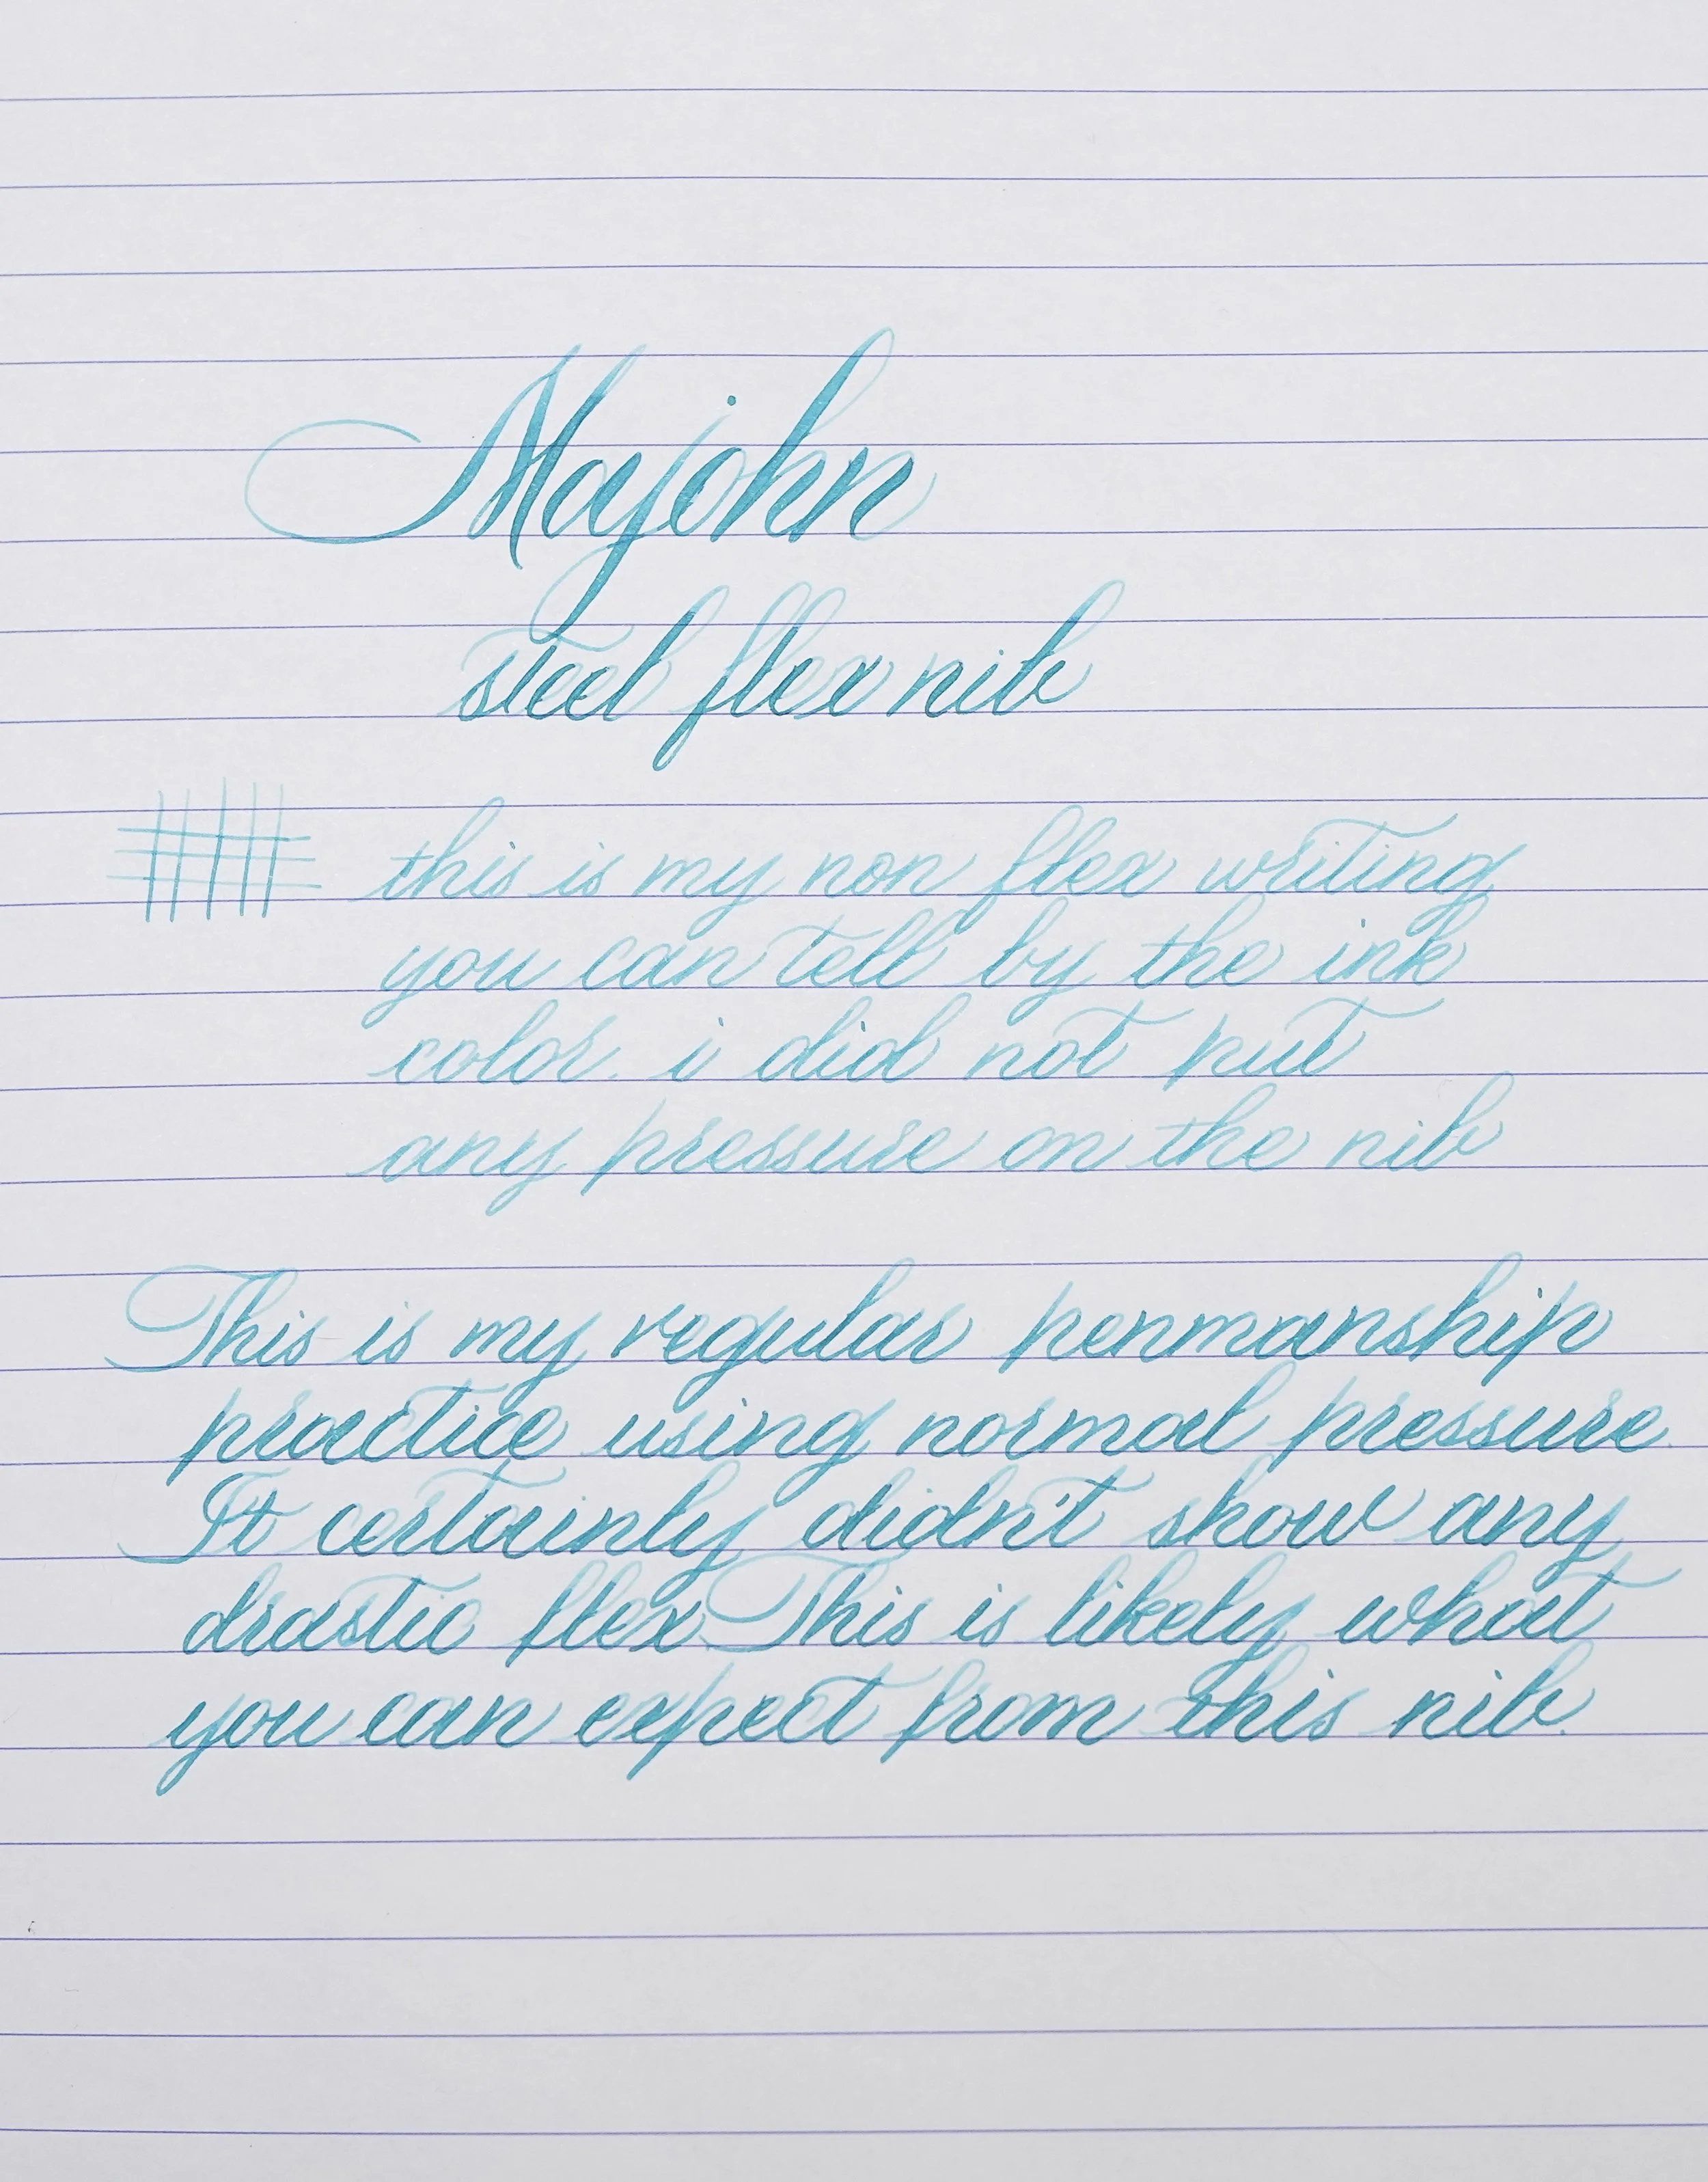 Majohn
steel flex nib
this is my non flex writing
you can tell by the ink
color. i did not put
any pressure on the nib
This is my regular penmanship
practice using normal pressure.
It certainly didn't show any
drastic flex. This is likely what
you can expect from this nib.